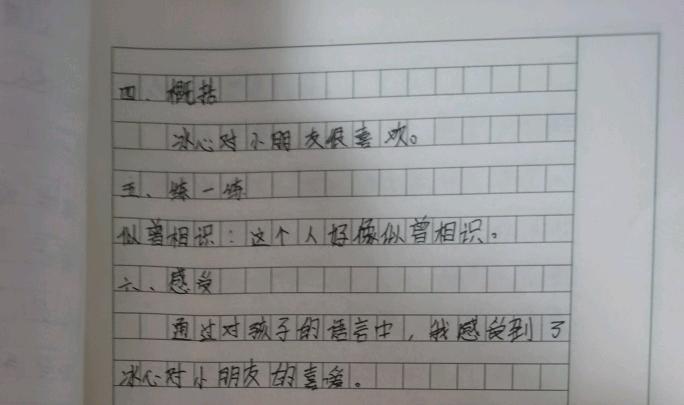 四、概括
冰心对小朋友很喜欢。
五、练一练
似曾相识:这个人好像似曾相识。
六、感受
通过对孩子的语言中,我感受到了
冰心对小朋友的喜爱。